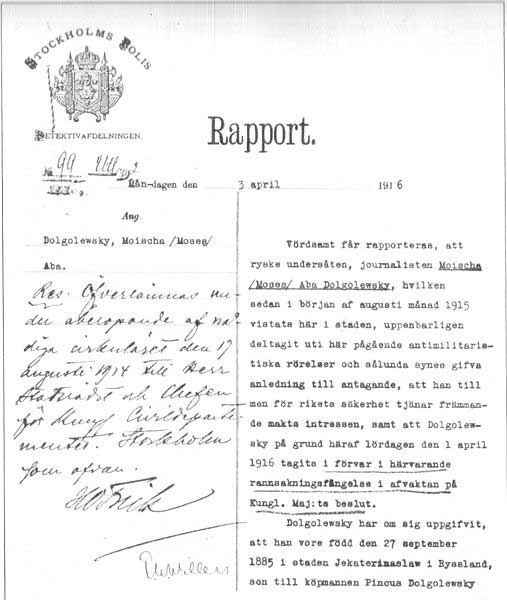 STOCKHOLMS POLIS
DETEKTIVAFDELNINGEN.
Rapport.
No 99
Mån-dagen den 3 april 1916
Ang.
Dolgolewsky, Moischa /Moses/
Aba.
Res. Öfverlämnas un-
der åberopande af nå-
diga cirkuläret den 17
augusti 1914 till Herr
Statsrådet och Chefen
för Kungl Civildeparte-
mentet. Stockholm
som ofvan.
Vördsamt får rapporteras, att
ryske undersåten, journalisten Moischa
/Moses/ Aba Dolgolewsky, hvilken
sedan i början af augusti månad 1915
vistats här i staden, uppenbarligen
deltagit uti här pågående antimilitaris-
tiska rörelser och sålunda synes gifva
anledning till antagande, att han till
men för rikets säkerhet tjänar främman-
de makts intressen, samt att Dolgolew-
sky på grund häraf lördagen den 1 april
1916 tagits i förvar i härvarande
rannsakningsfängelse i afvaktan på
Kungl. Maj:ts beslut.
Dolgolewsky har om sig uppgifvit,
att han vore född den 27 september
1885 i staden Jekaterinaslaw i Ryssland,
son till köpmannen Pincus Dolgolewsky